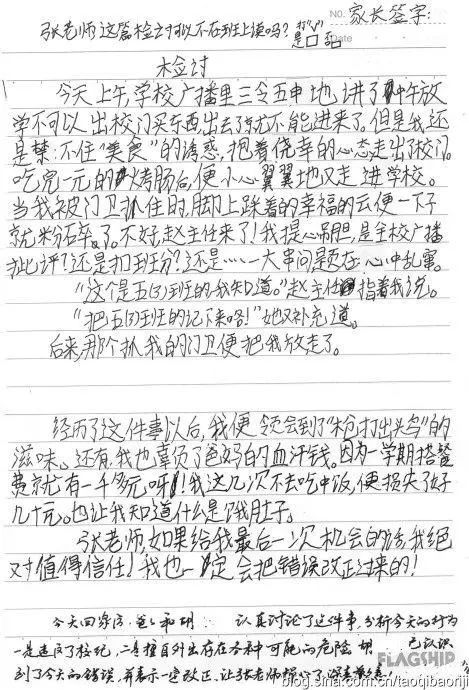 张老师这篇检讨可以不在班上读吗? 打"√" 是□ 否□
NO.
Date
家长签字:
检讨
今天上午,学校广播里三令五申地讲了中午放
学不可以出校门买东西出去了就不能进来了。但是我还
是禁不住“美食”的诱惑,抱着侥幸的心态走出了校门。
吃完一元的烤肠后,便小心翼翼地又走进学校。
当我被门卫抓住的时,脚上踩着的幸福的云便一下子
就粉碎了。不好,赵主任来了!我提心吊胆,是全校广播
批评?还是扣班分?还是……一大串问题在心中乱窜。
“这个是五(3)班的,我知道。”赵主任指着我说。
“把五(3)班的记下来哈!”她又补充道。
后来,那个抓我的门卫便把我放走了。
经历了这件事以后,我便领会到了“枪打出头鸟”的
滋味。还有,我也辜负了爸妈的血汗钱。因为一学期搭餐
费就有一千多元呀!我这几次不去吃中饭,便损失了好
几十元。也让我知道什么是饿肚子。
张老师,如果给我最后一次机会的话,我绝
对值得信任!我也一定会把错误改正过来的!
今天回家后,爸爸和 认真讨论了这件事,分析今天的行为
一是违反了校纪,二是擅自外出存在各种可能的危险 已认识
到了今天的错误,并表示一定改正,让张老师操心了,
FLAGSHIP
blog.sina.com.cn/taoqibaoriji